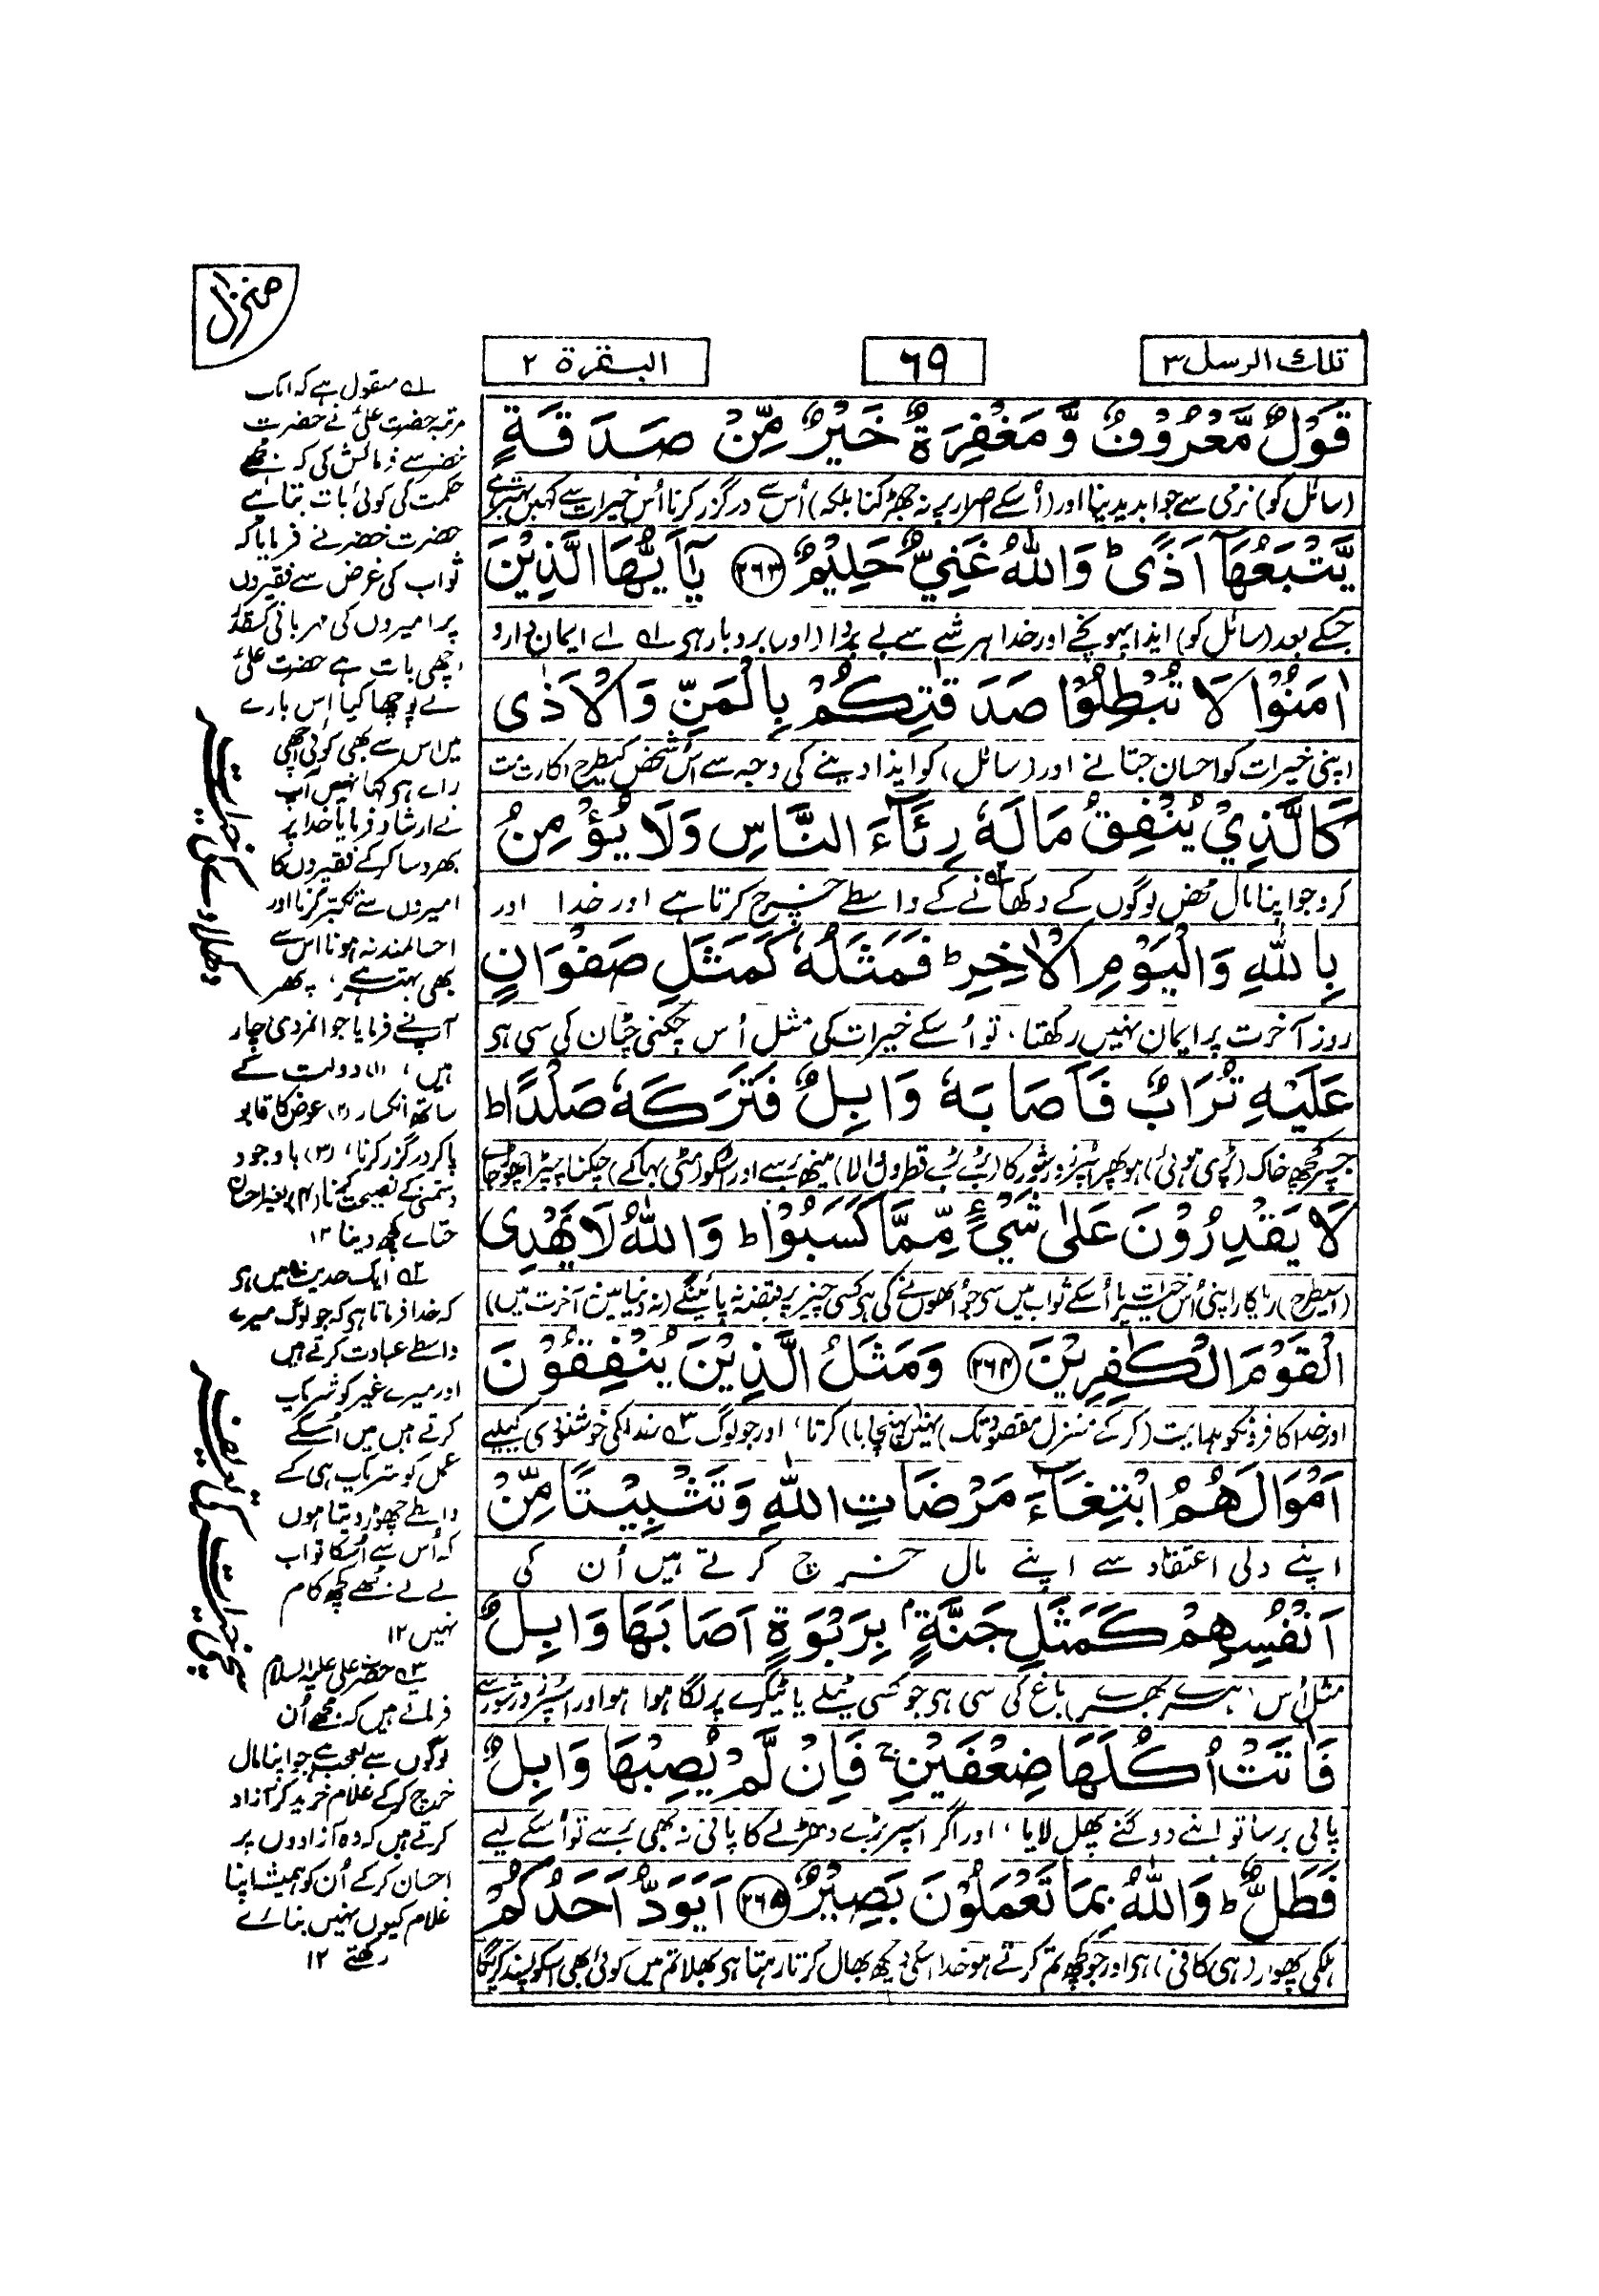 منزل
تلك الرسل ۳
٦٩
البقرة ۲
قَوْلٌ مَّعْرُوْفٌ وَّمَغْفِرَةٌ خَيْرٌ مِّنْ صَدَقَةٍ
(سائل کو) نرمی سے جواب دیدینا اور (اُسکے اصرار پر نہ جھڑکنا بلکہ) اُس سے درگزر کرنا اُس خیرات سے کہیں بہتر ہے
يَّتْبَعُهَآ اَذًى ط وَاللّٰهُ غَنِيٌّ حَلِيْمٌ ﴿۲۶۳﴾ يٰٓاَيُّهَا الَّذِيْنَ
جسکے بعد (سائل کو) ایذا پہونچے اور خدا ہر شے سے بے پروا (اور) بردبار ہی لہ اے ایماندارو
اٰمَنُوْا لَا تُبْطِلُوْا صَدَقٰتِكُمْ بِالْمَنِّ وَالْاَذٰى
اپنی خیرات کو احسان جتانے اور (سائل) کو ایذا دینے کی وجہ سے اُس شخص کیطرح اکارت مت
كَالَّذِيْ يُنْفِقُ مَالَهٗ رِئَآءَ النَّاسِ وَلَا يُؤْمِنُ
کرو جو اپنا مال محض لوگوں کے دکھانے کے واسطے خرچ کرتا ہے اور خدا اور
بِاللّٰهِ وَالْيَوْمِ الْاٰخِرِ ط فَمَثَلُهٗ كَمَثَلِ صَفْوَانٍ
روز آخرت پر ایمان نہیں رکھتا، تو اُسکے خیرات کی مثل اُس چکنی چٹان کی سی ہی
عَلَيْهِ تُرَابٌ فَاَصَابَهٗ وَابِلٌ فَتَرَكَهٗ صَلْدًا ط
جسپر کچھ خاک (پڑی ہوئی) ہو پھر اسپر زور شور کا (بڑے بڑے قطروں والا) مینھ برسے اور اسکو (مٹی بہا کے) چکنا چپڑا چھوڑ جائے
لَا يَقْدِرُوْنَ عَلٰى شَيْءٍ مِّمَّا كَسَبُوْا ط وَاللّٰهُ لَا يَهْدِى
(اسیطرح) ریاکار اپنی اُس خیرات یا اُسکے ثواب میں سے جو اُنھوں نے کی ہی کسی چیز پر قبضہ نہ پائینگے (نہ دنیا میں نہ آخرت میں)
الْقَوْمَ الْكٰفِرِيْنَ ﴿۲۶۴﴾ وَمَثَلُ الَّذِيْنَ يُنْفِقُوْنَ
اور خدا کافرونکو ہدایت (کرکے منزل مقصود تک) نہیں پہنچایا کرتا، اور جو لوگ خدا کی خوشنودی کیلیے
اَمْوَالَهُمُ ابْتِغَآءَ مَرْضَاتِ اللّٰهِ وَتَثْبِيْتًا مِّنْ
اپنے دلی اعتقاد سے اپنے مال خرچ کرتے ہیں اُن کی
اَنْفُسِهِمْ كَمَثَلِ جَنَّةٍ بِرَبْوَةٍ اَصَابَهَا وَابِلٌ
مثل اُس (ہرے بھرے) باغ کی سی ہی جو کسی ٹیلے یا ٹیکرے پر لگا ہوا ہو اور اسپر زور شور سے
فَاٰتَتْ اُكُلَهَا ضِعْفَيْنِ ج فَاِنْ لَّمْ يُصِبْهَا وَابِلٌ
پانی برسا تو اپنے دوگنے پھل لایا، اور اگر اسپر بڑے دھڑلے کا پانی نہ بھی برسے تو اُسکے لیے
فَطَلٌّ ط وَاللّٰهُ بِمَا تَعْمَلُوْنَ بَصِيْرٌ ﴿۲۶۵﴾ اَيَوَدُّ اَحَدُكُمْ
ہلکی پھوار (ہی کافی) ہی اور جو کچھ تم کرتے ہو خدا اسکی دیکھ بھال کرتا رہتا ہی بھلا تم میں کوئی بھی اسکو پسند کریگا
لہ منقول ہے کہ ایک
مرتبہ حضرت علیؑ نے حضرت
خضر سے فرمائش کی کہ مجھے
حکمت کی کوئی بات بتائیے
حضرت خضر نے فرمایا کہ
ثواب کی غرض سے فقیروں
پر امیروں کی مہربانی کسقدر
اچھی بات ہے حضرت علیؑ
نے پوچھا کیا اس بارے
میں اس سے بھی کوئی اچھی
راے ہی کہا نہیں آپ
نے ارشاد فرمایا خدا پر
بھروسا کرکے فقیروں کا
امیروں سے تکبر کرنا اور
احسانمند نہ ہونا اس سے
بھی بہتر ہے، پھر
آپنے فرمایا جوانمردی چار
ہیں، (۱) دولت کے
ساتھ انکسار (۲) عوض کا قابو
پاکر درگزر کرنا، (۳) باوجود
دشمنی کے نصیحت کرنا (۴) بغیر احسان
جتاے کچھ دینا ۱۲
۲ہ ایک حدیث میں ہی
کہ خدا فرماتا ہی کہ جو لوگ میرے
واسطے عبادت کرتے ہیں
اور میرے غیر کو شریک
کرتے ہیں میں اُسکے
عمل کو شریک ہی کے
واسطے چھوڑ دیتا ہوں
کہ اُس سے اُسکا ثواب
لے لے مجھے کچھ کام
نہیں ۱۲
۳ہ حضرت علی علیہ السلام
فرماتے ہیں کہ مجھے اُن
لوگوں سے تعجب ہے جو اپنا مال
خرچ کرکے غلام خرید کر آزاد
کرتے ہیں کہ وہ آزادوں پر
احسان کرکے اُن کو ہمیشہ اپنا
غلام کیوں نہیں بنائے
رکھتے ۱۲
دکھلاوے کی خیرات
سچی خیرات کی تعریف